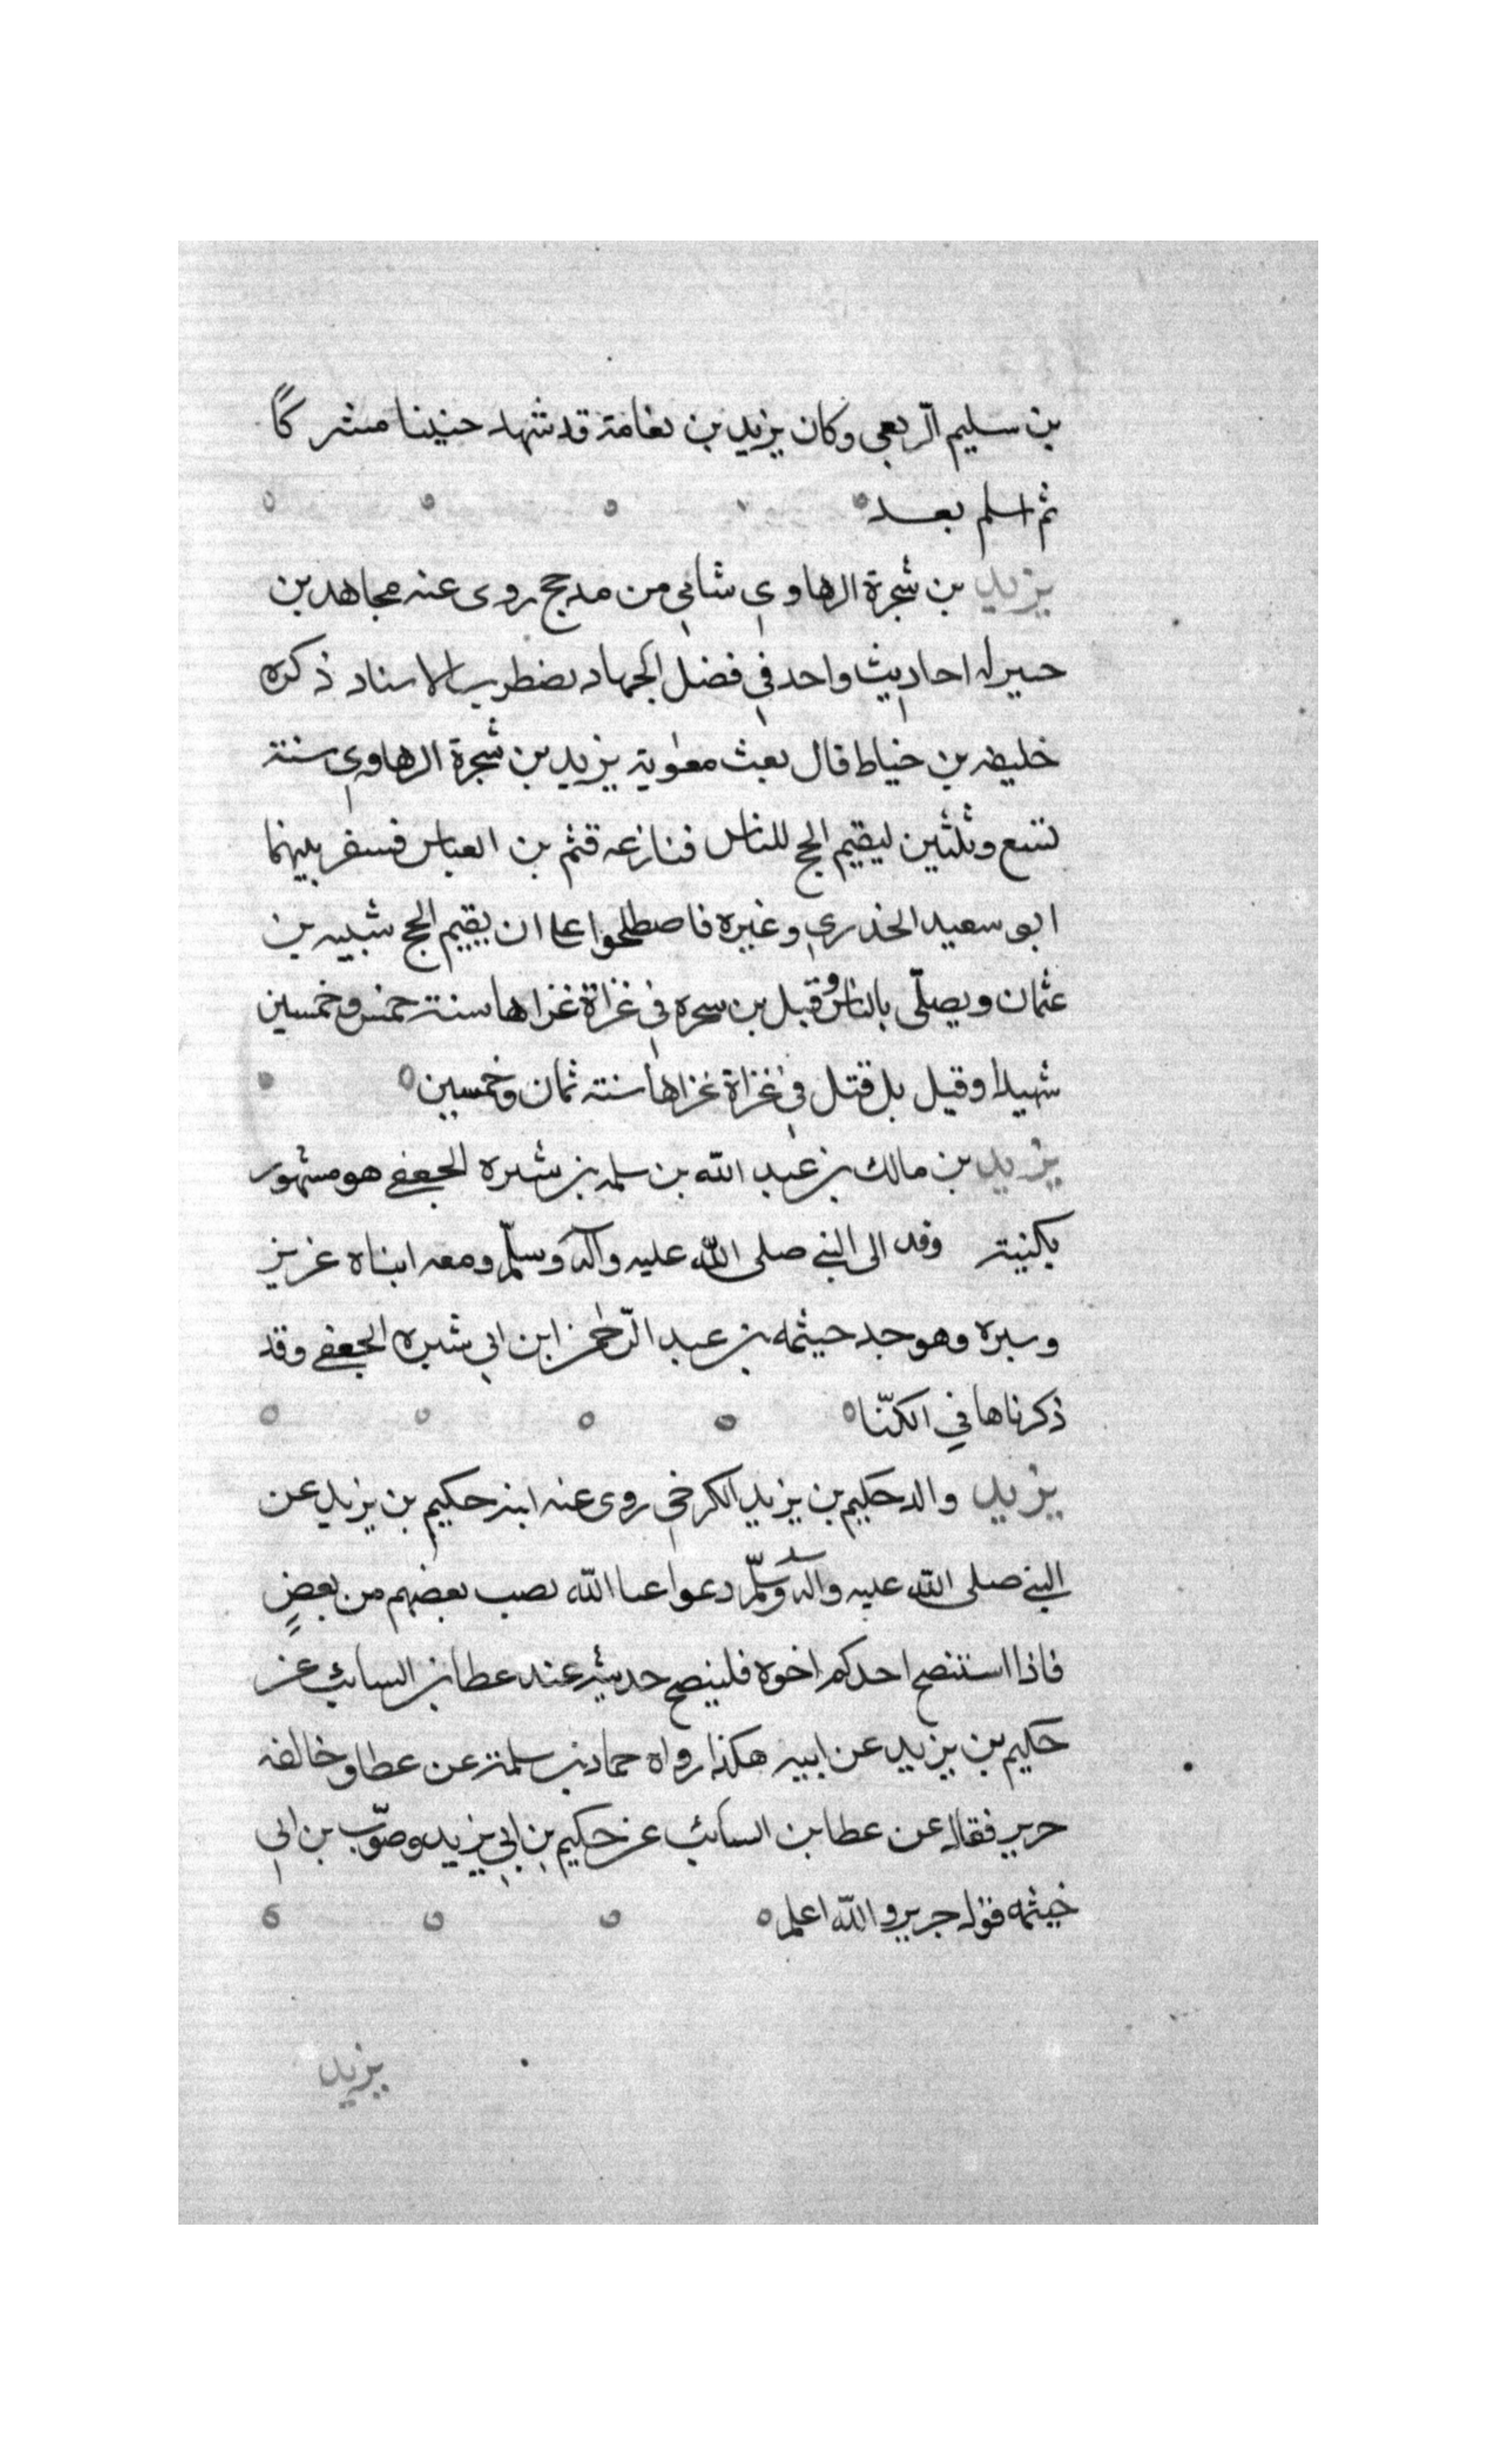 بن سليم الربعى وكان يزيد بن نعامة قد شهد حنينا مشركًا
ثم اسلم بعد
يزيد بن شجرة الرهاوي شامي من مدحج روى عنه مجاهد بن
له احاديث واحد في فضل الجهاد يضطرب الاسناد ذكره
خليفه بن خياط قال بعث معٰوية يزيد بن شجرة الرهاوي سنة
تسع وثلثين ليقيم الحج للناس فنازعه قثم بن العباس فسفر بينهما
ابو سعيد الخدري وغيره فاصطلحوا على ان يقيم الحج شيبه بن
عثمان ويصلّى بالناس وقيل بن سحره في غزاة غزاها سنة خمس وخمسين
شهيدا وقيل بل قتل في غزاة غزاها سنة ثمان وخمسين
يزيد بن مالك بن عبد الله بن سلمه بن شبره الجعفي هو مشهور
بكنيته وفد الى النبي صلى الله عليه وآله وسلّم ومعه ابناه عزيز
وسبره وهو جد حيثمه بن عبد الرّحمن ابن ابي شبره الجعفي وقد
ذكرناها في الكنّا
يزيد والد حكيم بن يزيد الكرخي روى عنه ابنه حكيم بن يزيد عن
النبي صلى الله عليه وآله وسلّم دعوا عبا الله نصب بعضهم من بعضٍ
فاذا استنصح احدكم اخوه فلينصح حديثه عند عطا بن السائب عن
حكيم بن يزيد عن ابيه هكذا رواه حماد بن سلمة عن عطا وخالفه
جرير فقال عن عطا بن السائب عن حكيم بن ابي يزيد وصوّب بن ابي
خيثمه قوله جرير والله اعلم
يزيد